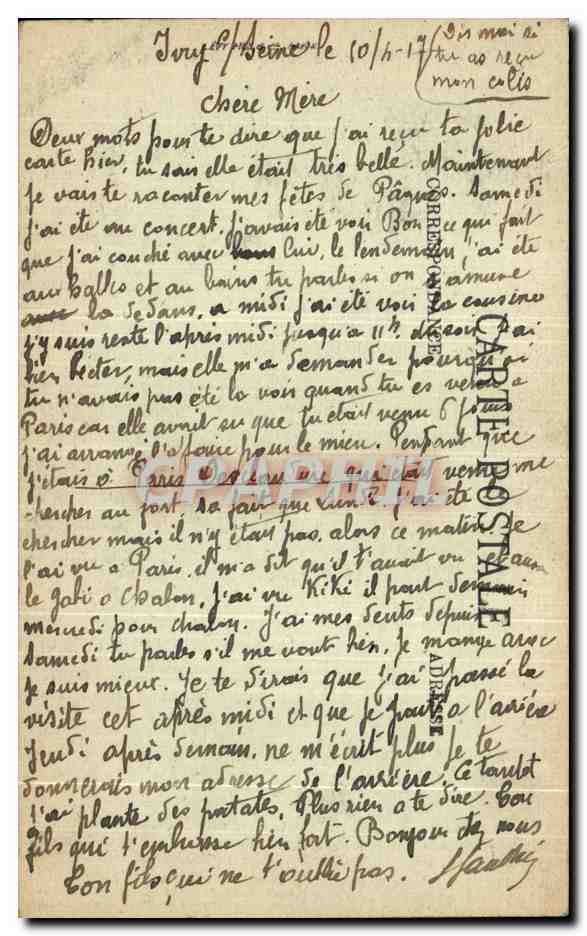 Ivry s/Seine le 10/4-17
Dis moi si
tu as reçu
mon colis
Chère Mère
Deux mots pour te dire que j'ai reçu ta jolie
carte hier, tu sais elle était très belle. Maintenant
je vais te raconter mes fêtes de Pâques. Samedi
j'ai été au concert, j'avais été voir Bon ce qui fait
que j'ai couché avec lui, le lendemain, j'ai été
aux halles et au bains tu parles si on s'amuse
la dedans, a midi j'ai été voir la cousine
j'y suis resté l'après midi jusqu'a 11h du soir. J'ai
bien mais elle m'a demander pourquoi
tu n'avais pas été la voir quand tu es venu a
Paris car elle avait su que tu était venu 6 jours
j'ai arrangé l'afaire pour le mieu. Pendant que
j'étais à Paris qui était venu me
chercher au fort, sa fait que Lundi j'ai été le
chercher mais il n'y était pas, alors ce matin je
l'ai vu a Paris, il m'a dit qu'il t'avait vu
le Gabi a Chalon, j'ai vu Kiki il part demain
mercredi pour Chalon. J'ai mes dents depuis
Samedi tu parles s'il me vont bien, je mange avec
je suis mieux. Je te dirais que j'ai passé la
visite cet après midi et que je part a l'arrière
Jeudi après demain, ne m'écrit plus je te
donnerais mon adresse de l'arrière. Ce tantot
j'ai planté des patates. Plus rien a te dire. Ton
fils qui t'embrasse bien fort. Bonjour chez nous
Ton fils qui ne t'oublie pas.
CORRESPONDANCE
CARTE POSTALE
ADRESSE
CPAPHIL